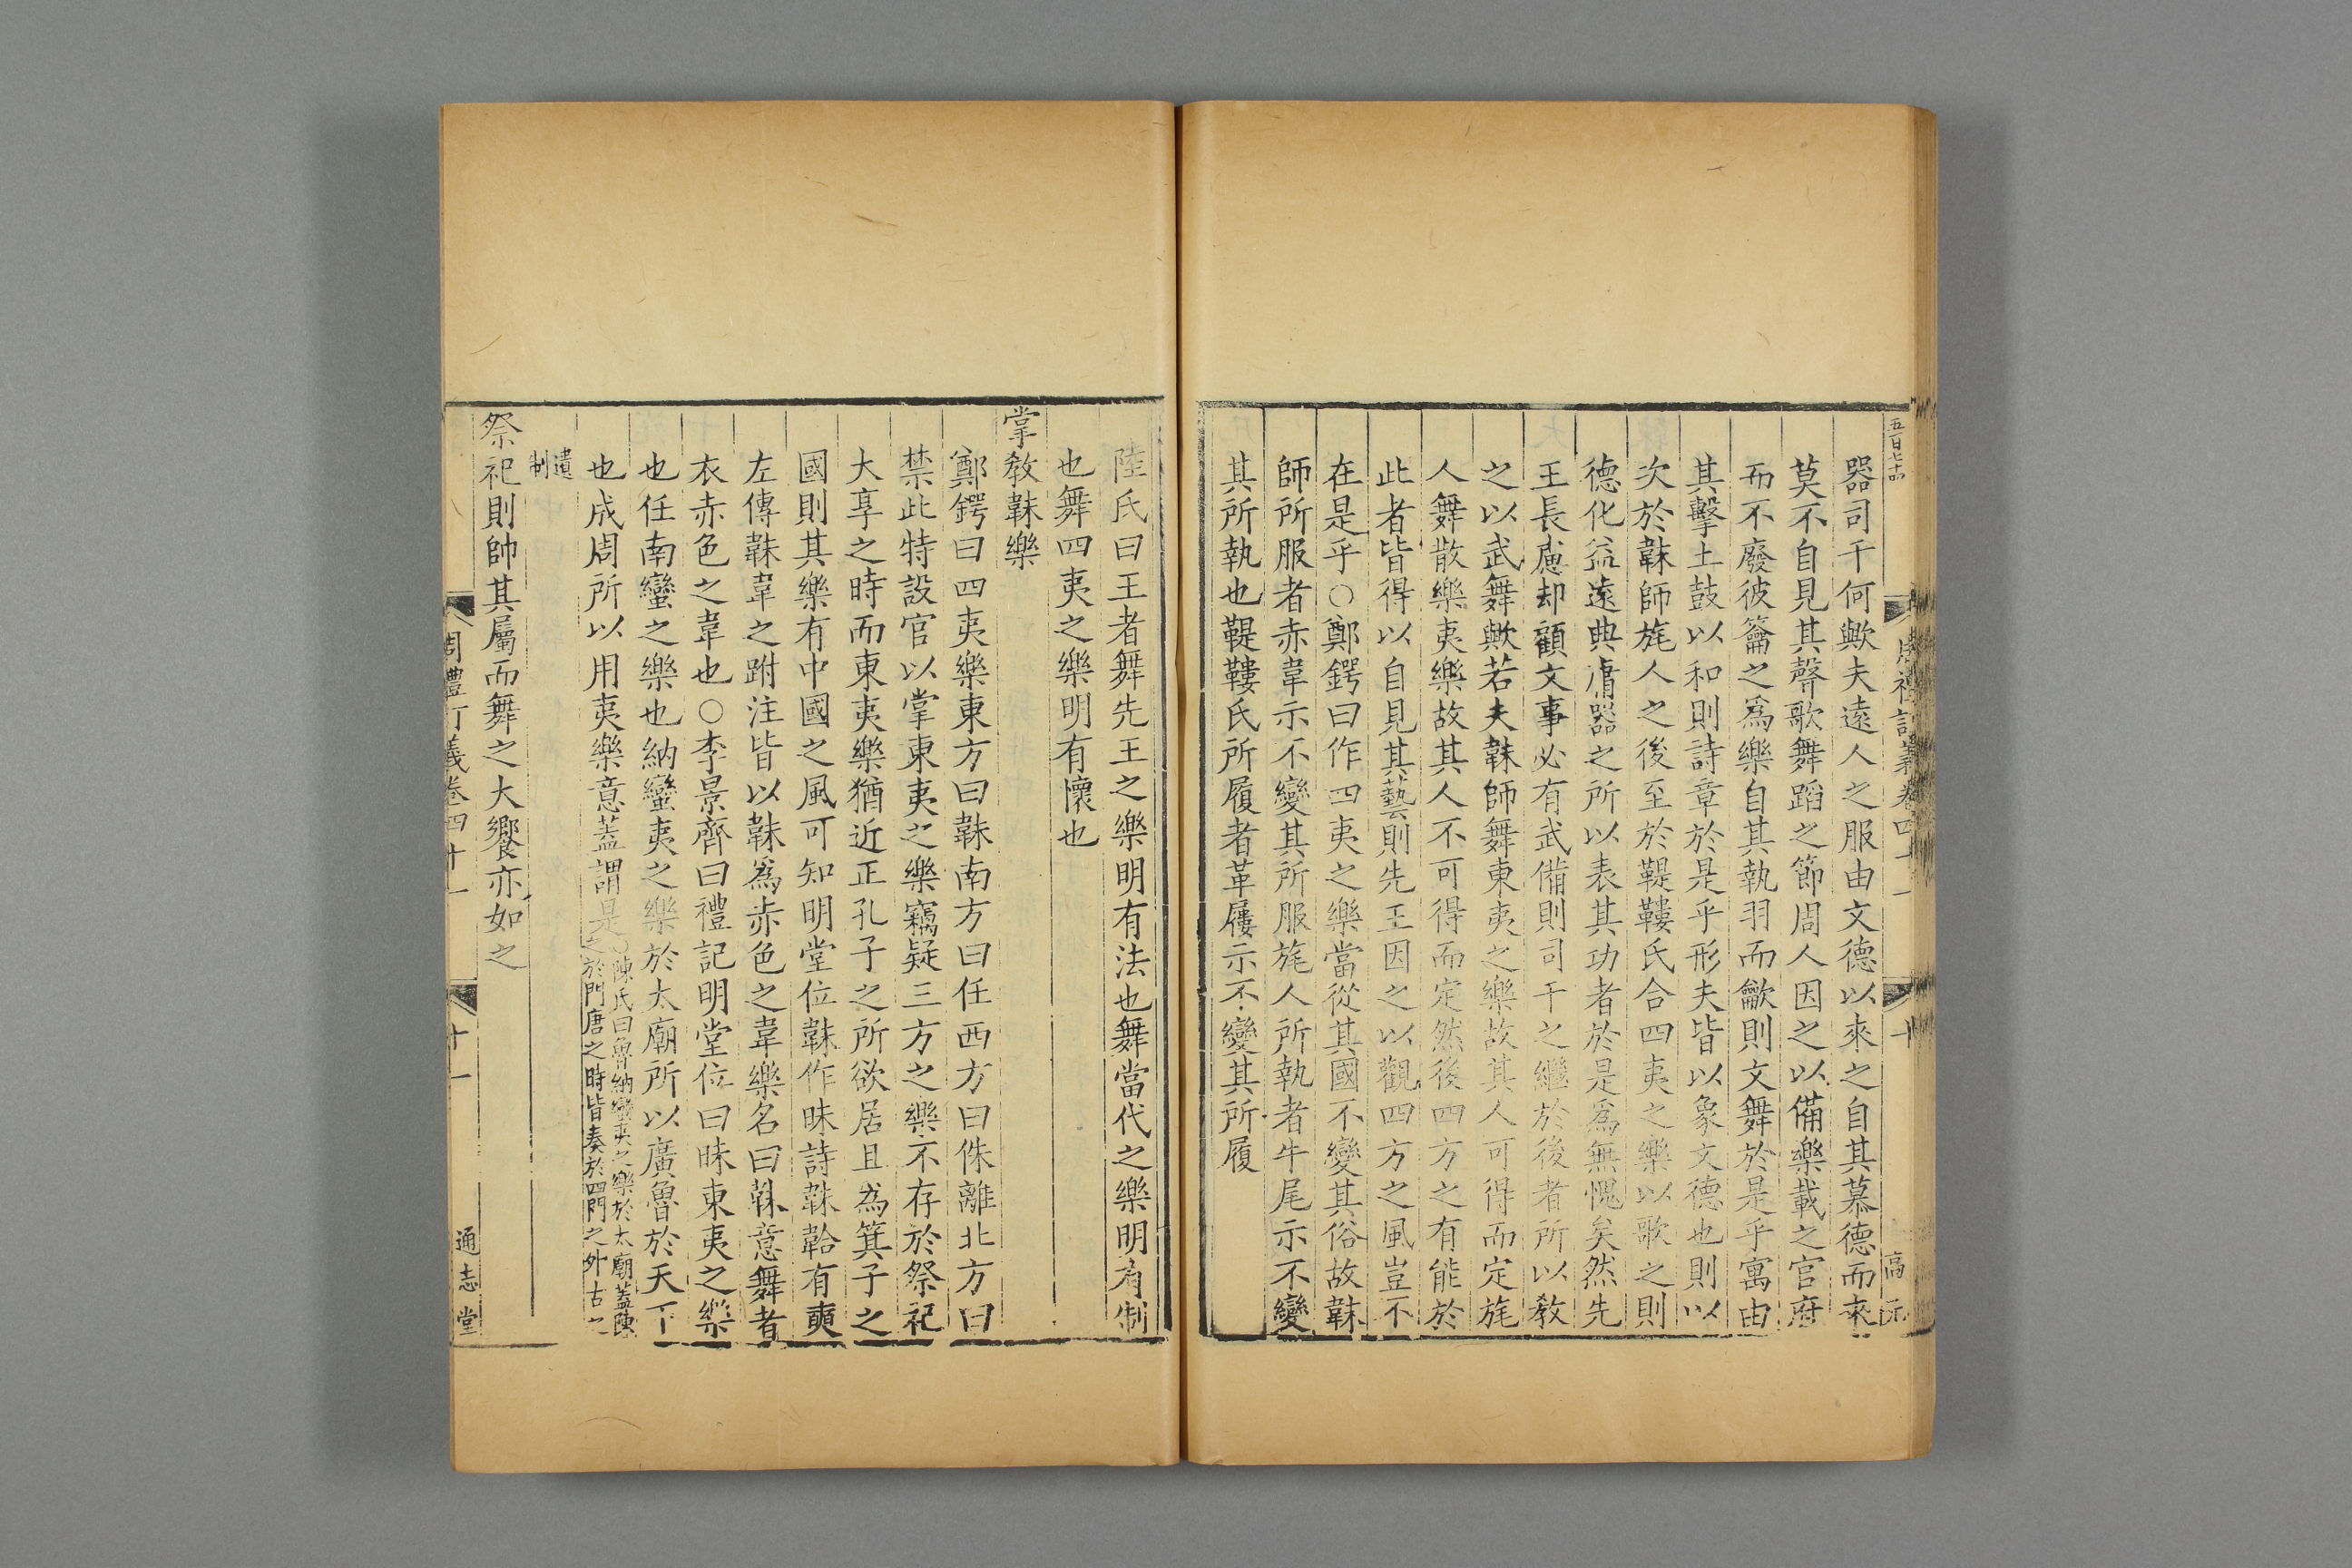 五百七十四
周禮訂義卷四十一
十
高元
器司干何歟夫遠人之服由文德以來之自其慕德而來
莫不自見其聲歌舞蹈之節周人因之以備樂載之官府
而不廢彼籥之為樂自其執羽而龡則文舞於是乎寓由
其擊土鼓以和則詩章於是乎形夫皆以象文德也則以
次於韎師旄人之後至於鞮鞻氏合四夷之樂以歌之則
德化益遠典庸器之所以表其功者於是爲無愧矣然先
王長慮却顧文事必有武備則司干之繼於後者所以教
之以武舞歟若夫韎師舞東夷之樂故其人可得而定旄
人舞散樂夷樂故其人不可得而定然後四方之有能於
此者皆得以自見其藝則先王因之以觀四方之風豈不
在是乎○鄭鍔曰作四夷之樂當從其國不變其俗故韎
師所服者赤韋示不變其所服旄人所執者牛尾示不變
其所執也鞮鞻氏所履者革屨示不變其所履
陸氏曰王者舞先王之樂明有法也舞當代之樂明有制
也舞四夷之樂明有懷也
掌教韎樂
鄭鍔曰四夷樂東方曰韎南方曰任西方曰侏離北方曰
禁此特設官以掌東夷之樂竊疑三方之樂不存於祭祀
大享之時而東夷樂猶近正孔子之所欲居且為箕子之
國則其樂有中國之風可知明堂位韎作昧詩韎韐有奭
左傳韎韋之跗注皆以韎爲赤色之韋樂名曰韎意舞者
衣赤色之韋也○李景齊曰禮記明堂位曰昧東夷之樂
也任南蠻之樂也納蠻夷之樂於太廟所以廣魯於天下
也成周所以用夷樂意蓋謂是○陳氏曰魯納蠻夷之樂於太廟蓋陳
之於門唐之時皆奏於四門之外古之
遺
制
祭祀則帥其屬而舞之大饗亦如之
周禮訂義卷四十一
十一
通志堂